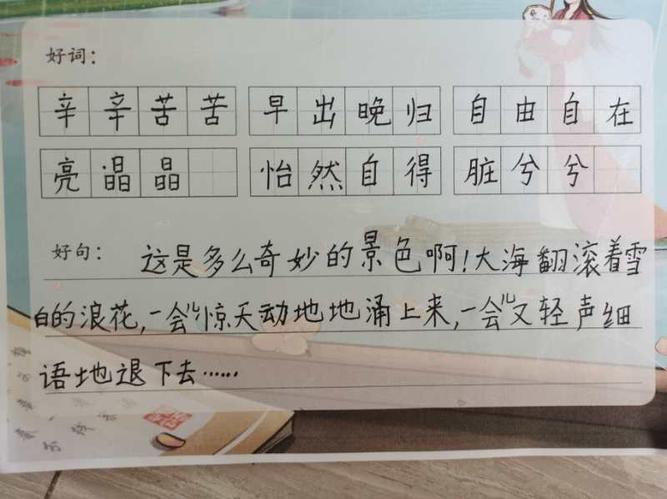 好词：
辛辛苦苦 早出晚归 自由自在
亮晶晶 怡然自得 脏兮兮
好句： 这是多么奇妙的景色啊！大海翻滚着雪
白的浪花，一会儿惊天动地地涌上来，一会儿又轻声细
语地退下去……